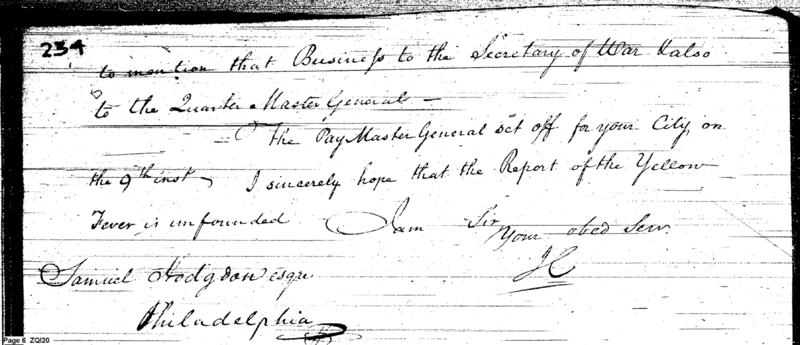 234
to mention that Business to the Secretary of War & also
to the Quarter Master General —
The PayMaster General set off for your City on
the 9th inst I sincerely hope that the Report of the Yellow
Fever is unfounded I am Sir
Your obed Serv.
JC
Samuel Hodgdon esqre
Philadelphia
Page 6 ZQI20